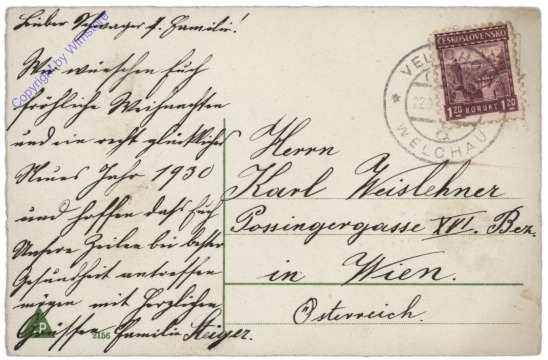 Lieber Schwager u. Familie!
Wir wünschen Euch
fröhliche Weihnachten
und ein recht glückliches
Neues Jahr 1930
und hoffen daß Euch
Unsere Zeilen bei bester
Gesundheit antreffen
mögen mit herzlichen
Grüssen Familie Steiger.
Herrn
Karl Weislehner
Possingergasse XVI. Bez.
in Wien.
Österreich.
ČESKOSLOVENSKO
1 20 KORUNY 1 20
WELCHAU
22.
P
2156
Copyright by Wilnitsky